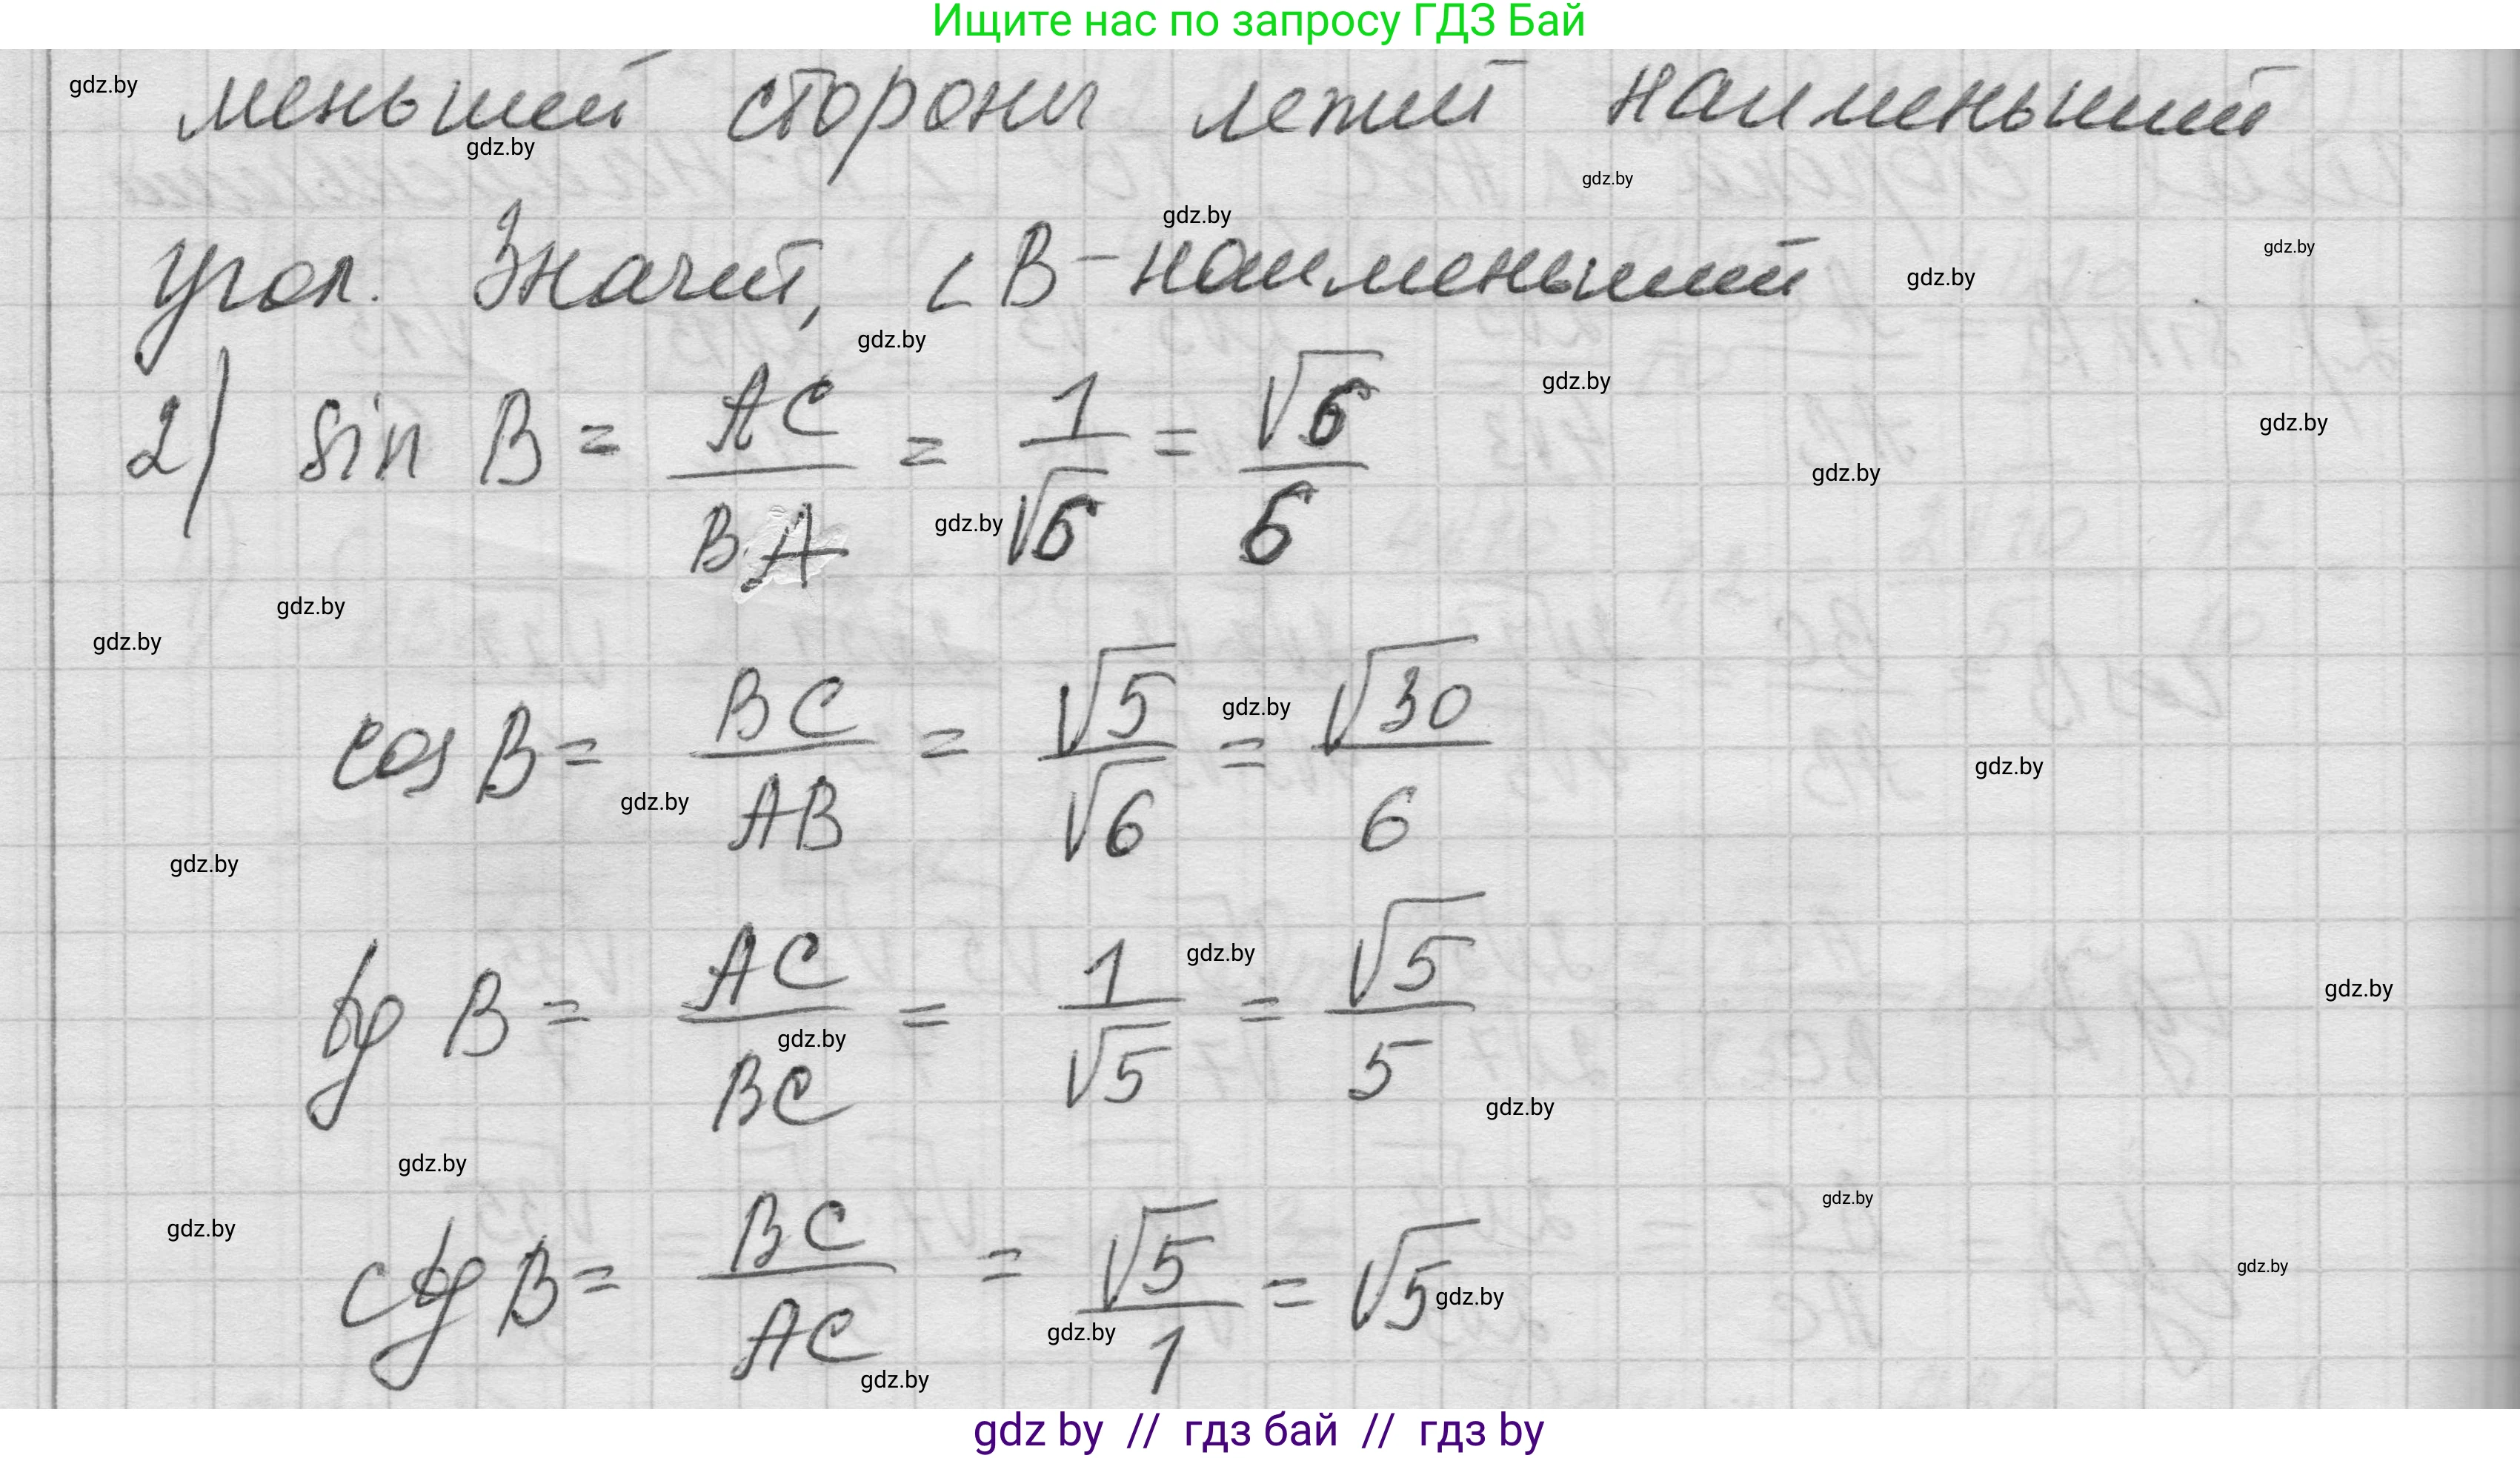 Ищите нас по запросу ГДЗ Бай
меньшей стороны лежит наименьший
угол. Значит, ∠B - наименьший
2) sin B = AC/BA = 1/√6 = √6/6
cos B = BC/AB = √5/√6 = √30/6
tg B = AC/BC = 1/√5 = √5/5
ctg B = BC/AC = √5/1 = √5
gdz.by
gdz by // гдз бай // гдз by